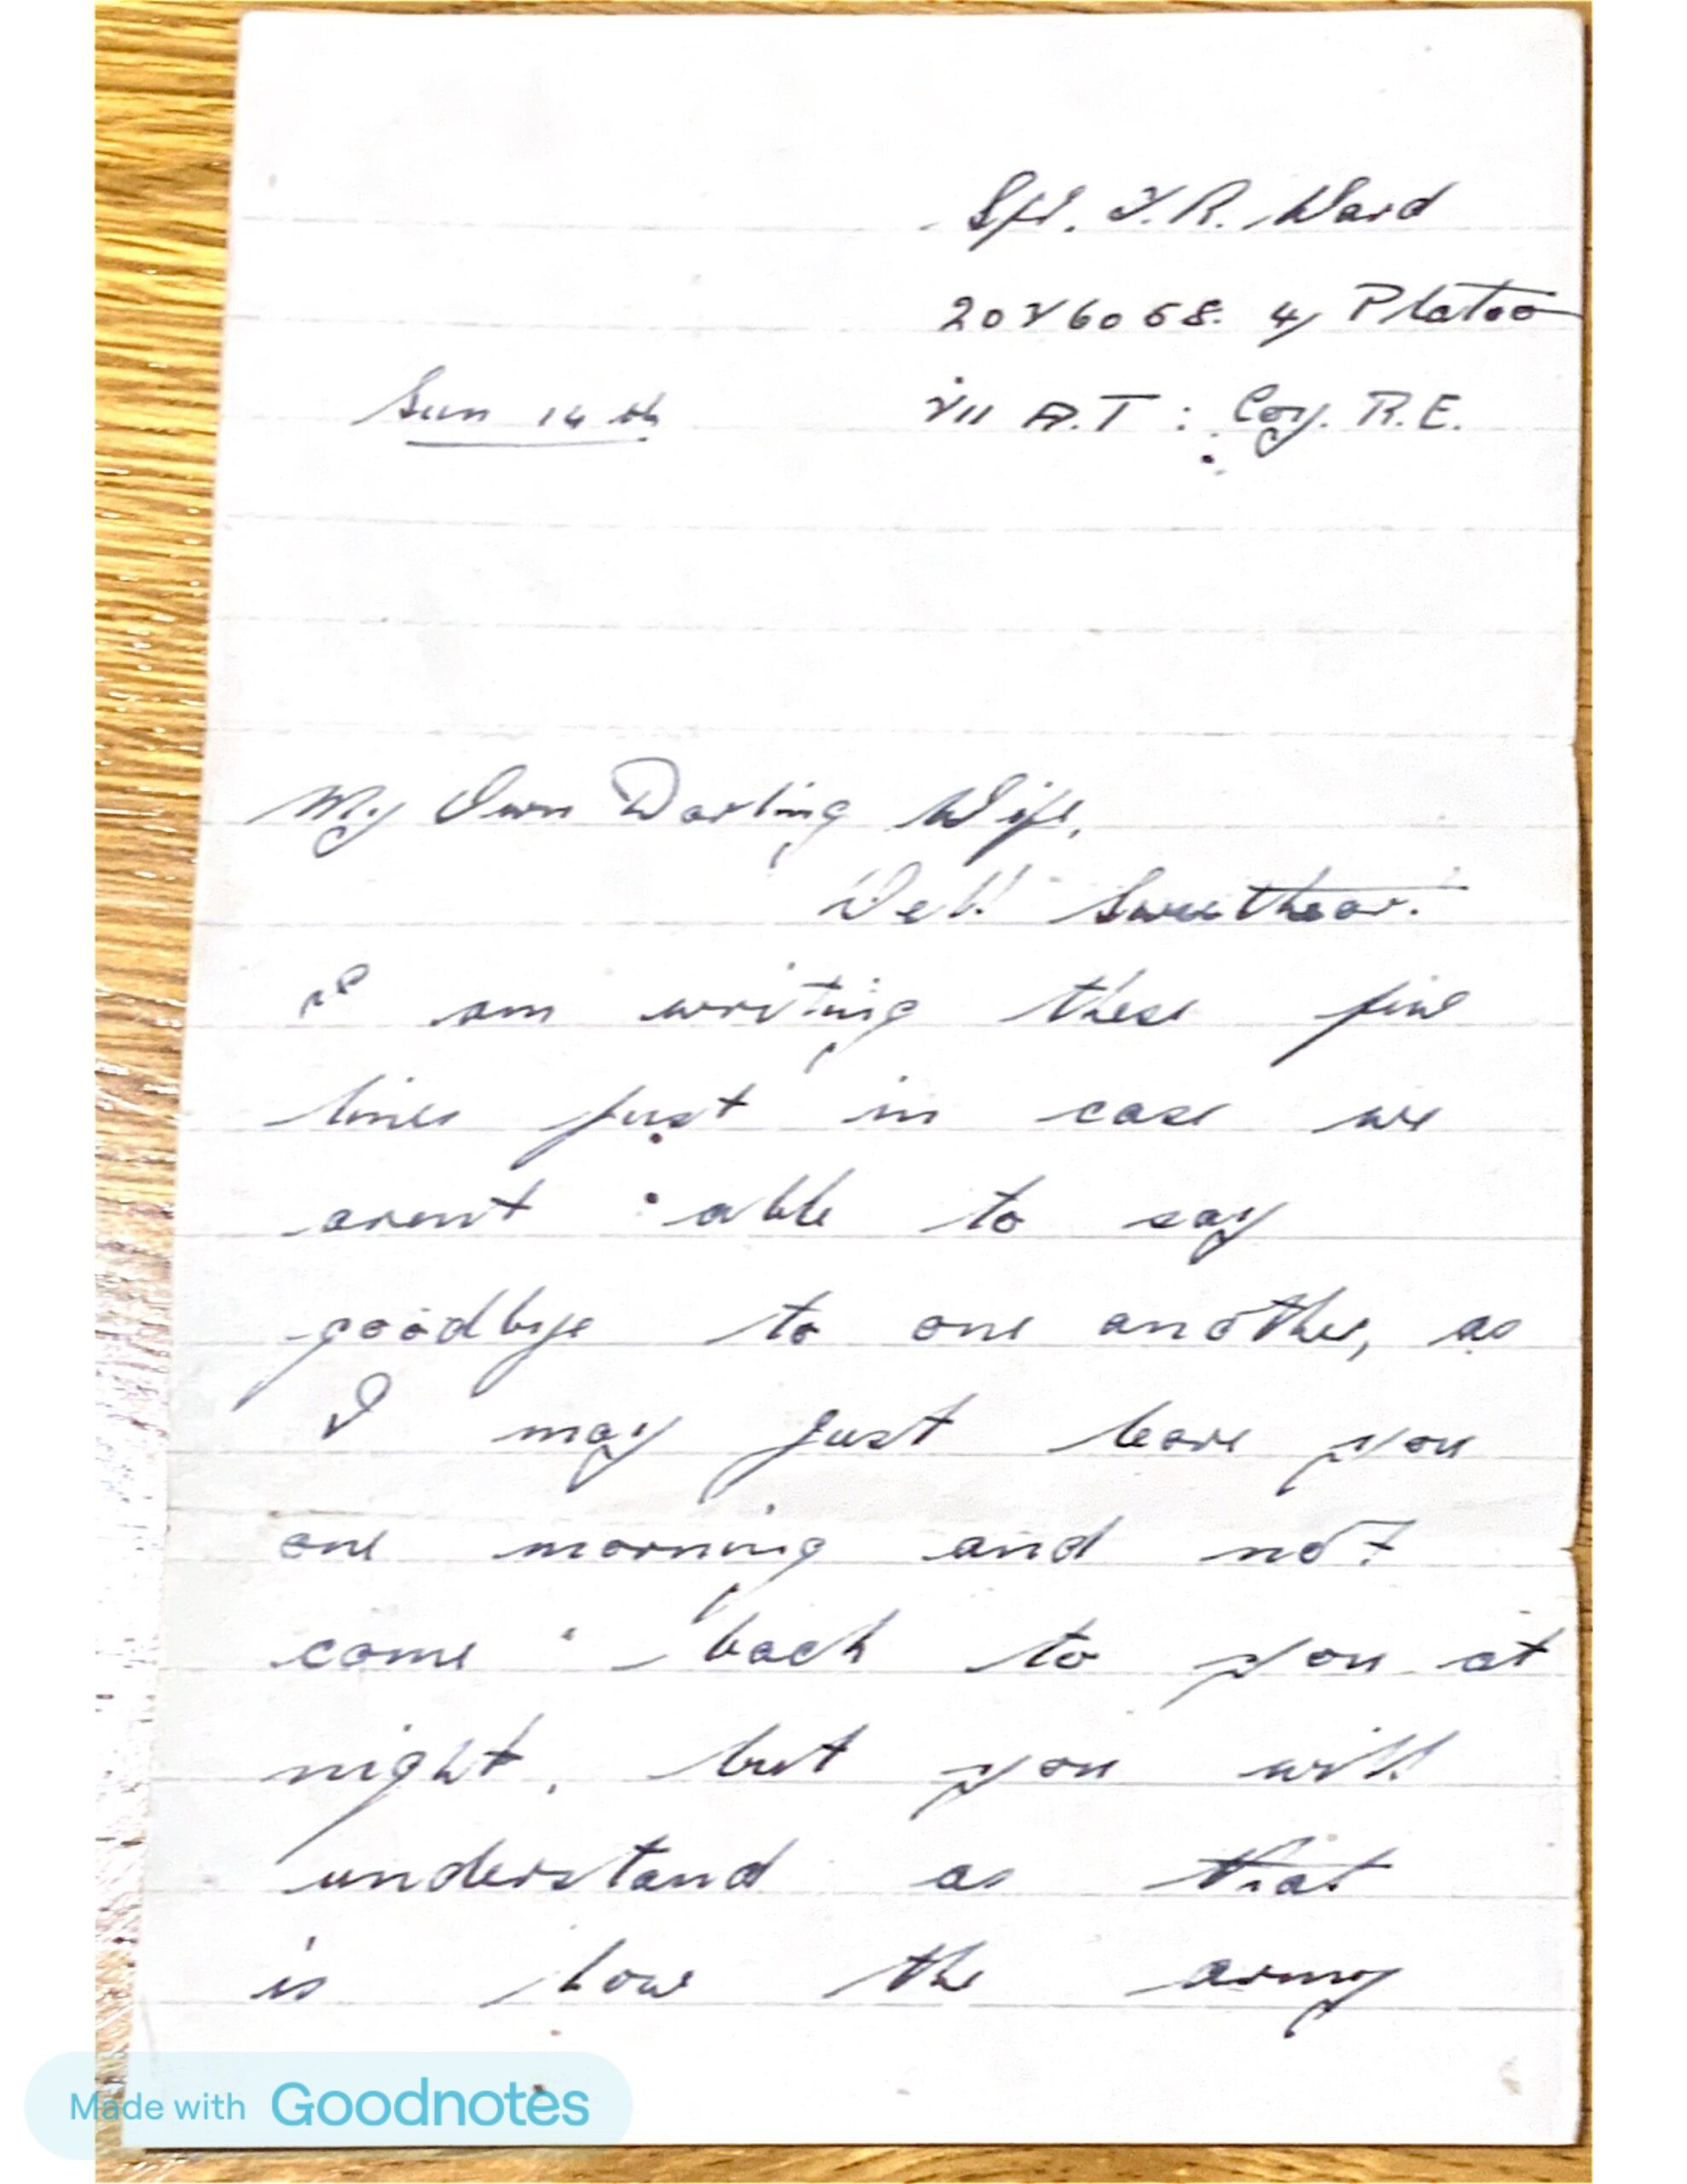 Spr. T. R. Ward
4 Platoo
Sun 14th
A.T : Coy. R.E.
My Own Darling Wife,
Well Sweethear.
I am writing these few
lines just in case we
arent able to say
goodbye to one another, as
I may just leave you
one morning and not
come back to you at
night, but you will
understand as that
is how the army
Made with Goodnotes